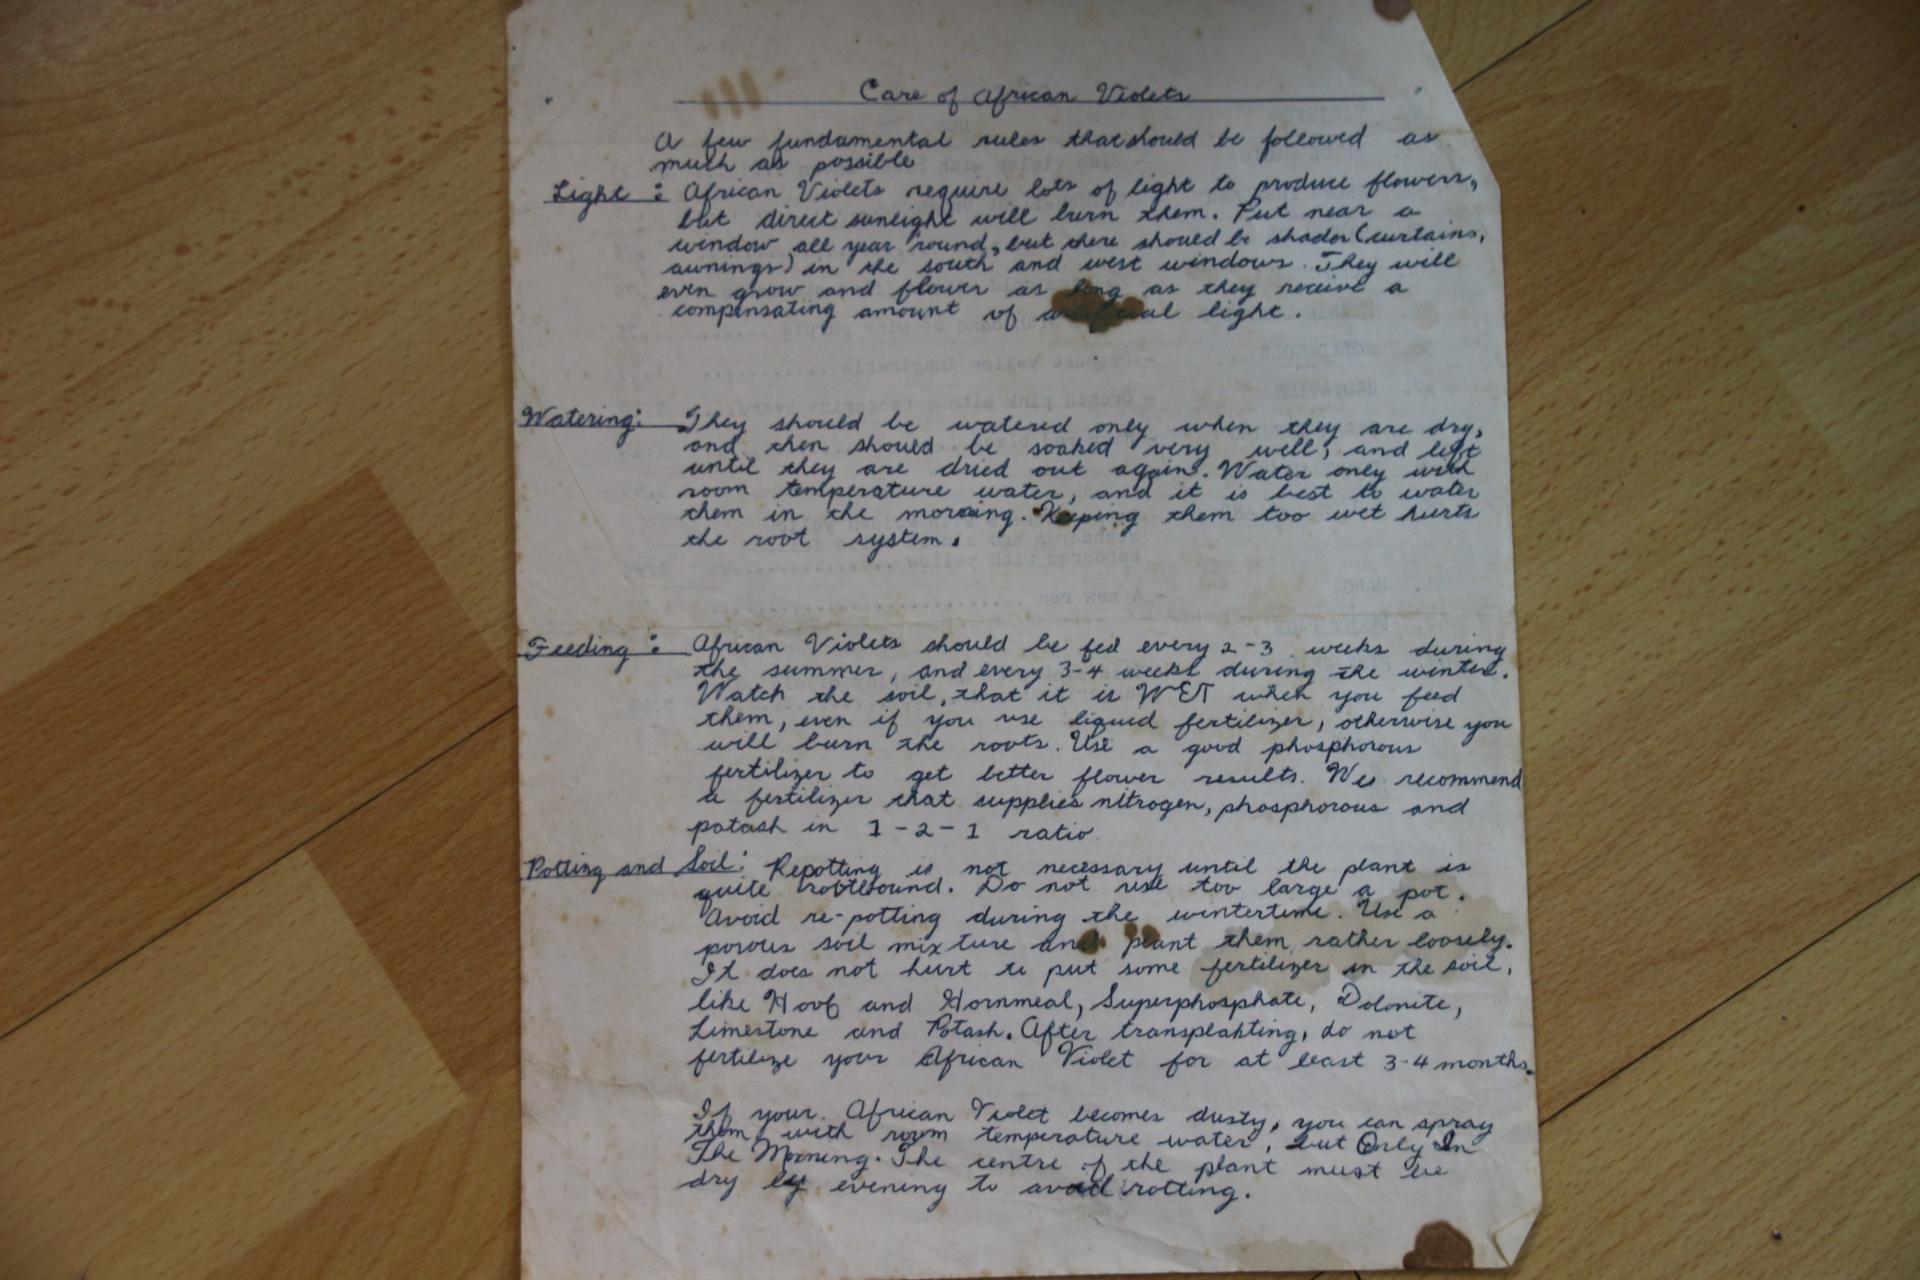 Care of African Violets
A few fundamental rules that should be followed as
much as possible
Light : African Violets require lots of light to produce flowers,
but direct sunlight will burn them. Put near a
window all year 'round, but there should be shades (curtains,
awnings) in the south and west windows. They will
even grow and flower as long as they receive a
compensating amount of artificial light.
Watering: They should be watered only when they are dry,
and then should be soaked very well, and left
until they are dried out again. Water only with
room temperature water, and it is best to water
them in the morning. Keeping them too wet hurts
the root system.
Feeding : African Violets should be fed every 2-3 weeks during
the summer, and every 3-4 weeks during the winter.
Watch the soil, that it is WET when you feed
them, even if you use liquid fertilizer, otherwise you
will burn the roots. Use a good phosphorous
fertilizer to get better flower results. We recommend
a fertilizer that supplies nitrogen, phosphorous and
potash in 1-2-1 ratio.
Potting and Soil: Repotting is not necessary until the plant is
quite rootbound. Do not use too large a pot.
Avoid re-potting during the wintertime. Use a
porous soil mixture and plant them rather loosely.
It does not hurt to put some fertilizer in the soil,
like Hoof and Hornmeal, Superphosphate, Dolonite,
Limestone and Potash. After transplanting, do not
fertilize your African Violet for at least 3-4 months.
If your African Violet becomes dusty, you can spray
them with room temperature water, but Only In
The Morning. The centre of the plant must be
dry by evening to avoid rotting.